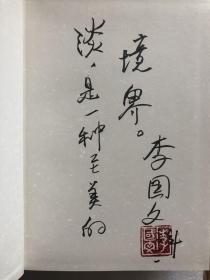 淡,是一种至美的
境界。
李国文